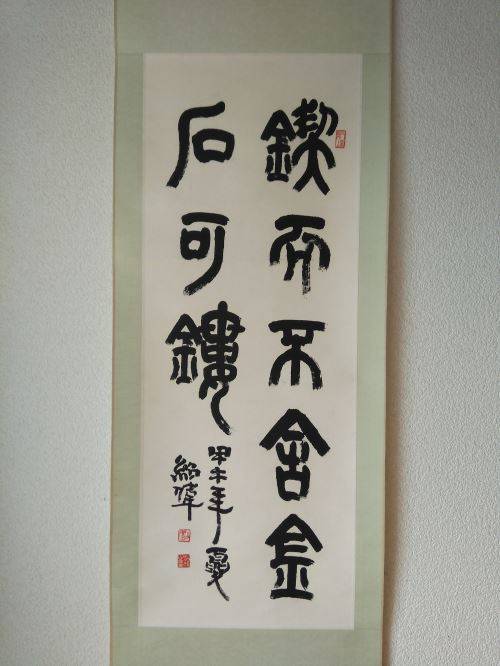 鍥而不舍金
石可鏤
甲午年夏
紹偉